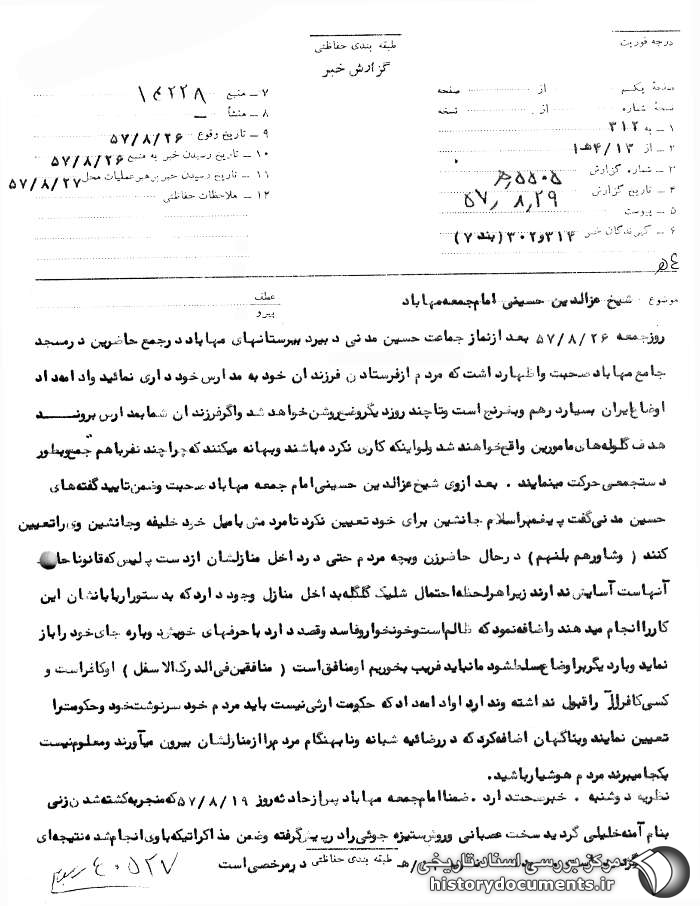 درجه فوریت
طبقه بندی حفاظتی
گزارش خبر
صفحه یکم از صفحه
نسخه شماره از نسخه
۱ ـ به ۳۱۲
۲ ـ از ۴/۱۳هـ۱
۳ ـ شماره گزارش
۴ ـ تاریخ گزارش ۵۷٫۸٫۲۹
۵ ـ پیوست
۶ ـ گیرندگان خبر ۳۱۴و۳۰۲(بند ۷)
۷ ـ منبع ۱۴۲۲۸
۸ ـ منشأ ـ
۹ ـ تاریخ وقوع ۵۷/۸/۲۶
۱۰ ـ تاریخ رسیدن خبر به منبع ۵۷/۸/۲۶
۱۱ ـ تاریخ رسیدن خبر برهبر عملیات محل ۵۷/۸/۲۷
۱۲ ـ ملاحظات حفاظتی
موضوع شیخ عزالدین حسینی امام جمعه مهاباد
عطف
پیرو
روزجمعه ۵۷/۸/۲۶ بعد ازنماز جماعت حسین مدنی دبیردبیرستانهای مهاباد درجمع حاضرین درمسجد
جامع مهاباد صحبت واظهارداشت که مردم ازفرستادن فرزندان خود به مدارس خود داری نمائید وادامه داد
اوضاع ایران بسیاردرهم وبغرنج است وتاچند روزدیگروضع روشن خواهد شد واگرفرزندان شما بمدارس بروند
هدف گلوله های مامورین واقع خواهند شد ولواینکه کاری نکرده باشند وبهانه میکنند که چراچند نفرباهم جمع وبطور
دستجمعی حرکت مینمایند . بعد ازوی شیخ عزالدین حسینی امام جمعه مهاباد صحبت وضمن تایید گفته های
حسین مدنی گفت پیغمبراسلام جانشین برای خود تعیین نکرد تامردمش بامیل خود خلیفه وجانشین وی راتعیین
کنند ( وشاورهم بلنهم) درحال حاضرزن وبچه مردم حتی درداخل منازلشان ازدست پلیس که قانونا
آنهاست آسایش ندارند زیراهرلحظه احتمال شلیک گلگله بداخل منازل وجود دارد که بدستوراربابانشان این
کارراانجام میدهند واضافه نمود که ظالم است وخونخواروفاسد وقصد دارد باحرفهای خویش دوباره جای خود راباز
نماید وبارد یگربراوضاع مسلط شود مانباید فریب بخوریم اومنافق است ( منافقین فی الدرک الاسفل ) اوکافراست و
کسی کافررا قبول نداشته وندارد اوادامه داد که حکومت ارثی نیست باید مردم خود سرنوشت خود وحکومت را
تعیین نمایند وبناگهان اضافه کرد که دررضائیه شبانه ونابهنگام مردم راازمنازلشان بیرون میآورند ومعلوم نیست
بکجا میبرند مردم هوشیارباشید.
نظریه دوشنبه . خبرصحت دارد .ضمنا امام جمعه مهاباد پس ازحادثه روز ۵۷/۸/۱۹ که منجربه کشته شدن زنی
بنام آمنه خلیلی گردید سخت عصبانی وروش ستیزه جوئی رادرپیش گرفته وضمن مذاکراتیکه باوی انجام شده نتیجه ای
طبقه بندی حفاظتی درمرخصی است
۴۰۵۲۷
مرکز بررسی اسناد تاریخی
historydocuments.ir